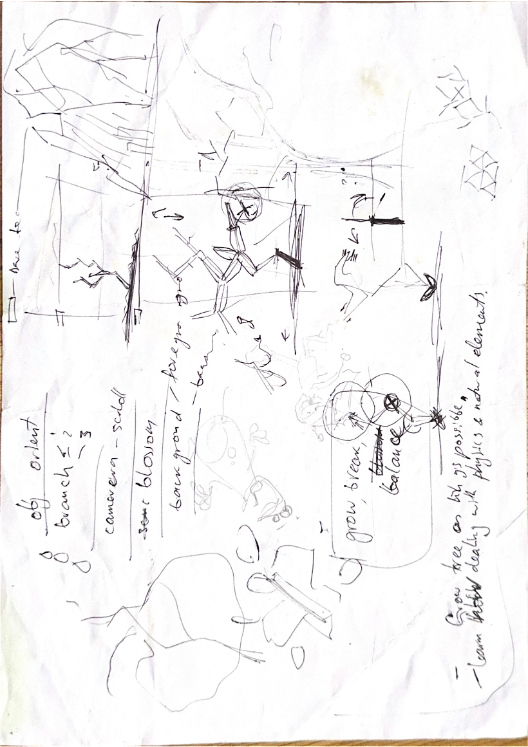 obj orient
branch
camera - scroll
blossom
background / foreground
grow, break
balance
- Grow tree as high as possible.
- learn dealing with physics & natural elements!